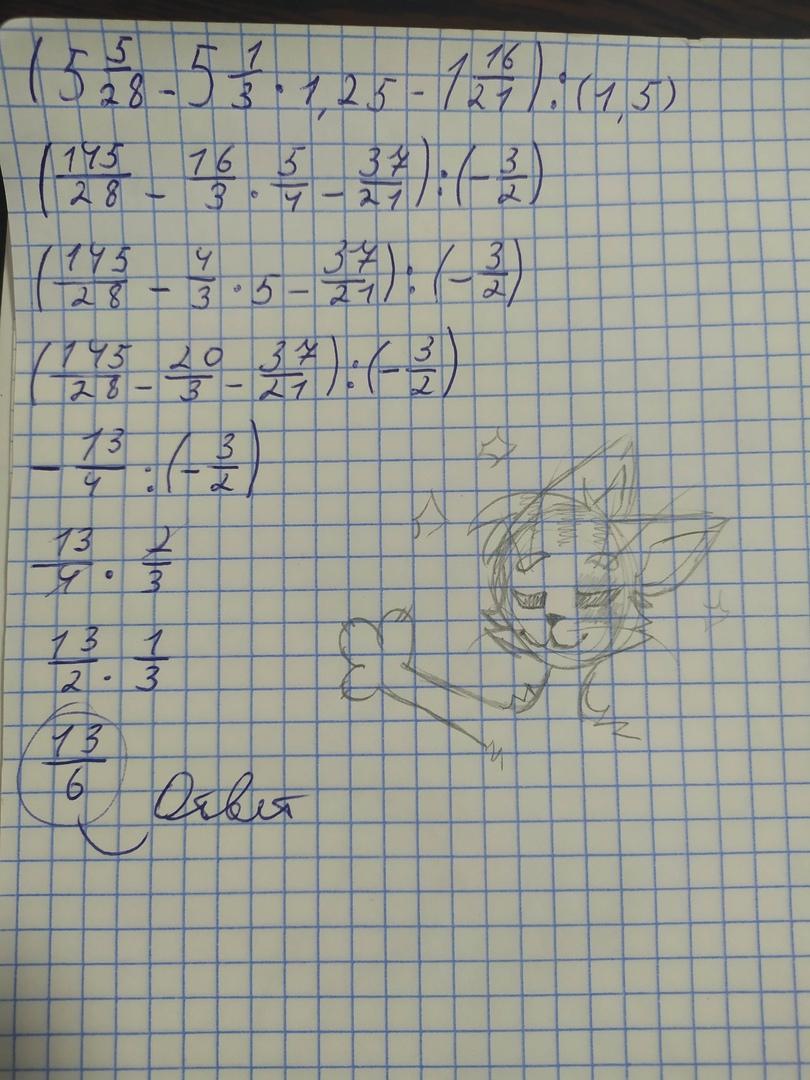 (5 5/28 - 5 1/3 · 1,25 - 1 16/21) : (1,5)
(145/28 - 16/3 · 5/4 - 37/21) : (- 3/2)
(145/28 - 4/3 · 5 - 37/21) : (- 3/2)
(145/28 - 20/3 - 37/21) : (- 3/2)
- 13/4 : (- 3/2)
13/4 · 2/3
13/2 · 1/3
13/6 Ответ